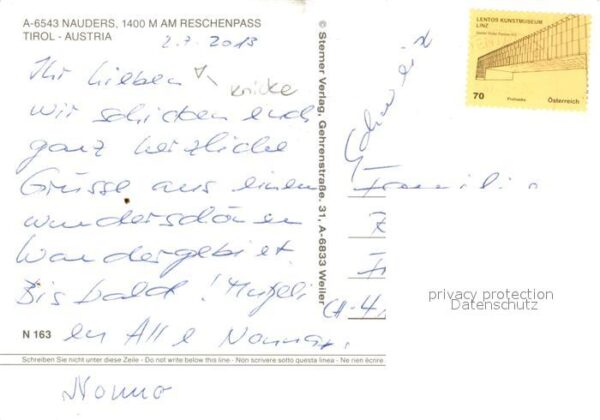 A-6543 NAUDERS, 1400 M AM RESCHENPASS
TIROL - AUSTRIA
2.7.2013
Ihr Lieben
Knicke
wir schicken euch
ganz herzliche
Grüsse aus einem
wunderschönen
Wandergebiet.
Bis bald!
en Alle Nonna
Nonno
N 163
Schreiben Sie nicht unter diese Zeile - Do not write below this line - Non scrivere sotto questa linea - Ne rien écrire
© Sterner Verlag, Gehrenstraße. 31, A-6833 Weiler
LENTOS KUNSTMUSEUM
LINZ
70
Österreich
Schweiz
Familie
CH-4
privacy protection
Datenschutz